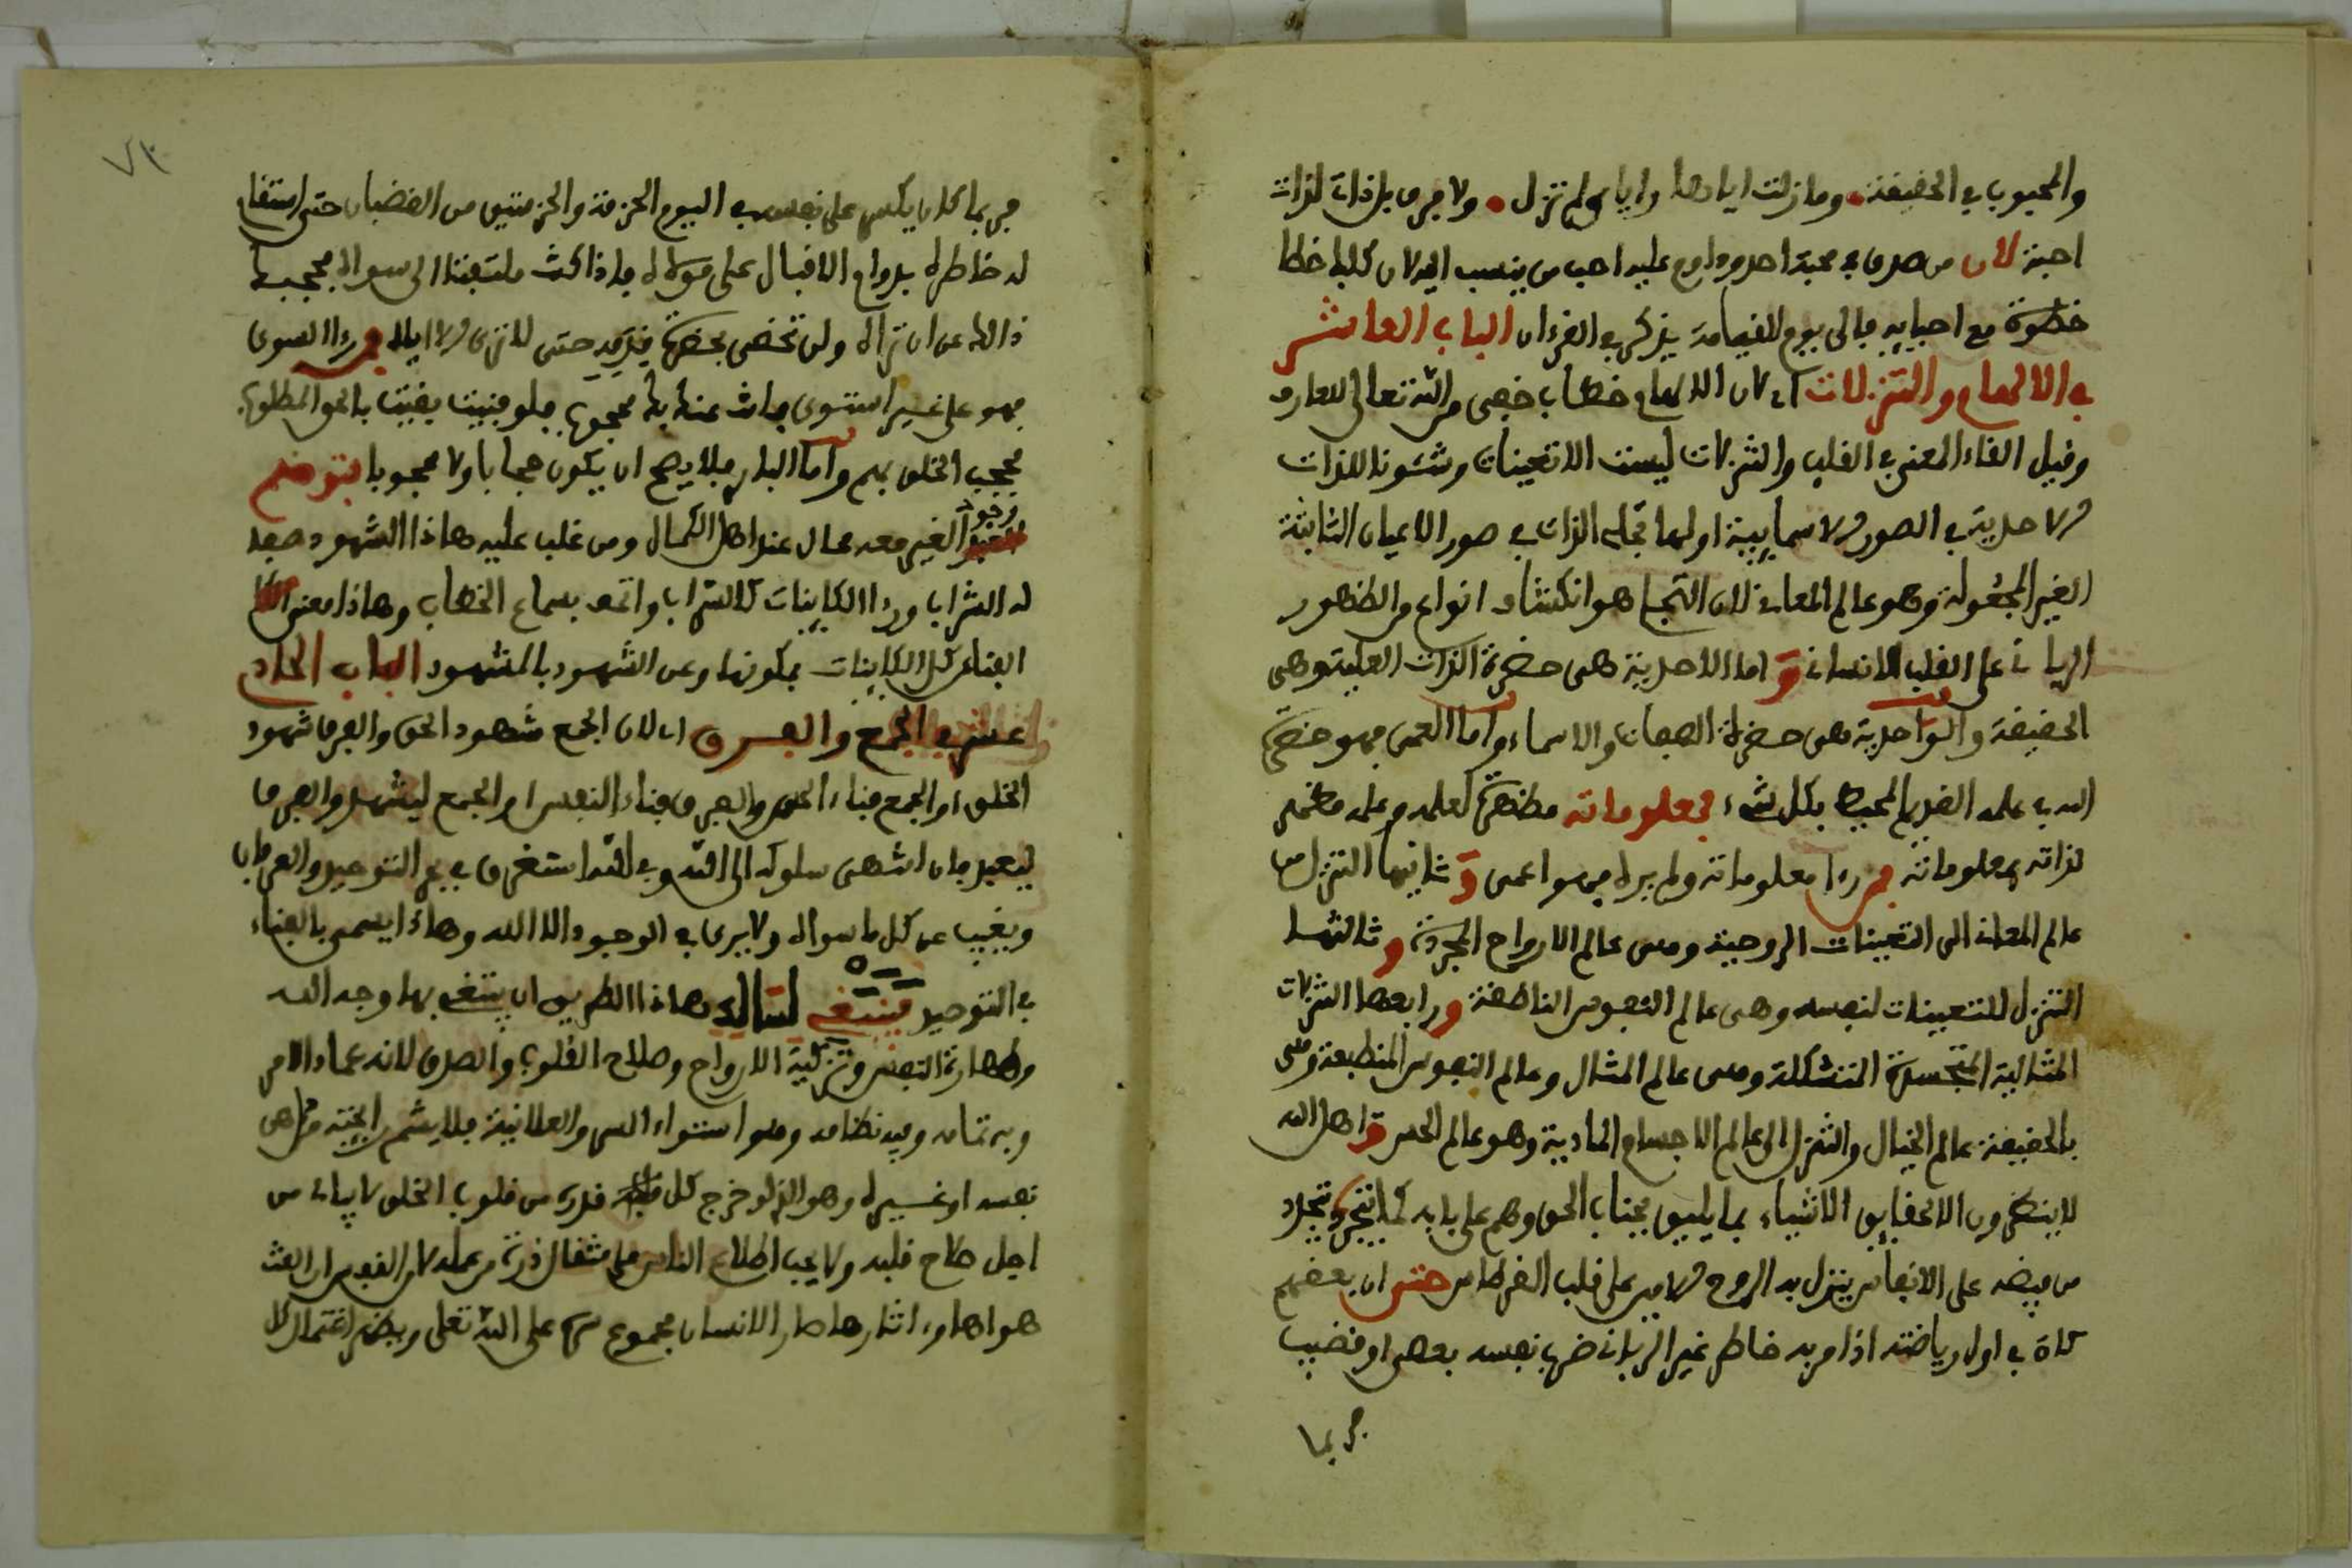 والمحبوب في الحقيقة وما زلت اياها واياي لم تزل ولا فرق بل ذاتي لذاتي
احبة لان من صدق في محبة احد وداوم عليه احب من ينسب اليه لان كلبا خطا
خطوة مع احبابه فالى يوم القيامة يذكر في القرءان الباب العاشر
في الالهام والتنزلات اي لان الالهام خطاب خفي من الله تعالى للعارف
وقيل القاء المعنى في القلب والتنزلات ليست الا تعينات وشئونا للذات
الاحدية في الصور الاسمايية اولها تجلي الذات في صور الاعيان الثابتة
الغير المجعولة وهو عالم المعاني لان التجلي هو انكشاف انوار الظهور
الرباني على القلب الانساني و اما الاحدية هى حضرة الذات وهى
الحقيقة والواحدية هى حضرة الصفات والاسماء واما العمى فهو حضرة
الله في علمه القديم المحيط بكل شيء فمعلوماته مظهرة لعلمه وعلمه مظهر
لذاته بمعلوماته فمن رءا معلوماته ولم يره فهو اعمى و ثانيها التنزل من
عالم المعاني الى التعينات الروحية وهى عالم الارواح المجردة و ثالثها
التنزل للتعينات لنفسه وهى عالم النفوس الناطقة و رابعها التنزلات
المثالية المتجسدة المتشكلة وهى عالم المثال وعالم النفوس المنطبعة وهى
بالحقيقة عالم الخيال والتنزل الى عالم الاجسام المادية وهو عالم الحس و اهل الله
لا ينكرون الا حقايق الاشياء بما يليق بجناب الحق وهم على بابه تتجدد
من فيضه على الانفاس ينزل به الروح الامين على قلب القرطاس حتى ان بعضهم
كان في اول رياضته اذا مر به خاطر غير الرباني ضرب نفسه بعصى او قضيب
فربما
٧٣
فربما كان يكسر على نفسه في اليوم الحزمة والحزمتين من القضبان حتى استقام
له خاطره بدوام الاقبال على مولاه فاذا كنت ملتفتا الى سواه محجبك
ذالك عن ان تراه ولن تحضى بحضرة قدسه حتى لا ترى الا اياه فمن رءا السوى
فهو على غير استوى محجوب فلو فنيت بقيت بالحق المطلوب
محجب الخلق بهم واما الباري فلا يصح ان يكون حجابا ولا محجوبا فتوهم
وجود الغير معه محال عند اهل الكمال ومن غلب عليه هاذا الشهود صفا
له الشراب ورءا الكاينات كالسراب واتحف بسماع الخطاب وهاذا معنى
الفناء عن كل الكاينات بمكونها وعن الشهود بالمشهود الباب الحادي
عشر في الجمع والفرق اي لان الجمع شهود الحق والفرق شهود
الخلق او الجمع فناء الحس والفرق فناء النفس او الجمع ليشهد والفرق
ليعبد فان انتهى سلوكه الى الله وفي الله استغرق في بحر التوحيد والعرفان
ويغيب عن كل ما سواه ولا يرى في الوجود الا الله وهاذا يسمى بالفناء
في التوحيد فينبغي لسالك هاذا الطريق ان يبتغي بها وجه الله
وطهارة النفس وتزكية الارواح وصلاح القلوب والصدق لانه عماد الامر
وبه تمامه وفيه نظامه وهو استواء السر والعلانية فلا يشم رايحته
نفسه او غيره وهو الذي لو خرج كل قدره من قلوب الخلق لا يبالي من
اجل صلاح قلبه ولا يحب اطلاع الناس على مثقال ذرة من عمله لان النفوس ان
هواها وءاثارها صار الانسان مجموع على الله تعلى